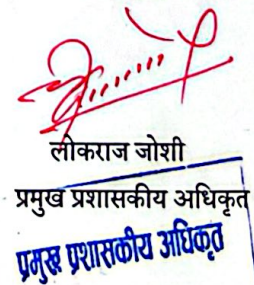 लोकराज जोशी
प्रमुख प्रशासकीय अधिकृत
प्रमुख प्रशासकीय अधिकृत